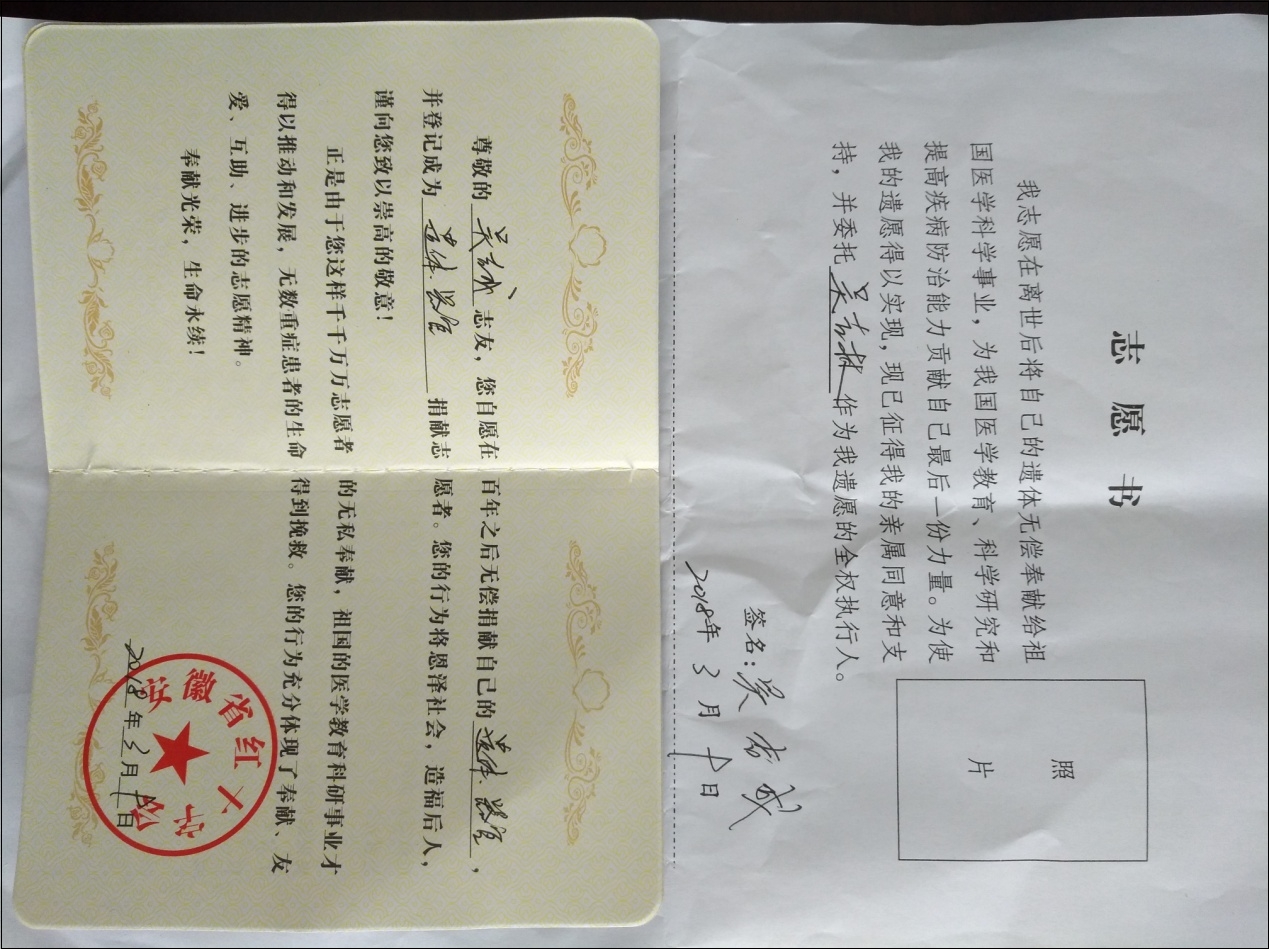 志愿书
我志愿在离世后将自己的遗体无偿奉献给祖
国医学科学事业，为我国医学教育、科学研究和
提高疾病防治能力贡献自己最后一份力量。为使
我的遗愿得以实现，现已征得我的亲属同意和支
持，并委托吴作为我遗愿的全权执行人。
照
片
签名：吴
2018年3月日
尊敬的吴志友，您自愿在百年之后无偿捐献自己的遗体、器官，
并登记成为遗体、器官捐献志愿者。您的行为将恩泽社会，造福后人，
谨向您致以崇高的敬意！
正是由于您这样千千万万志愿者的无私奉献，祖国的医学教育科研事业才
得以推动和发展，无数重症患者的生命得到挽救。您的行为充分体现了奉献、友
爱、互助、进步的志愿精神。
奉献光荣，生命永续！
安徽省红十字会
2018年3月日